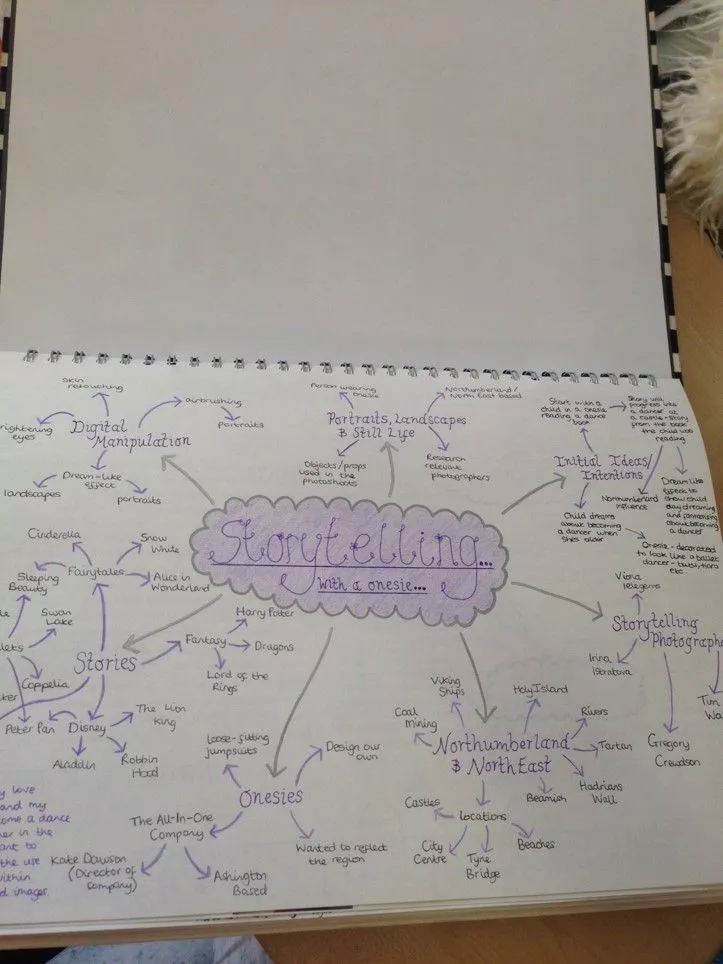 Storytelling...
with a onesie...
Digital
Manipulation
Skin
retouching
airbrushing
portraits
eyes
Dream-like
effect
landscapes
portraits
Portraits, Landscapes
& Still Life
Person wearing
onesie
Northumberland/
North East based
Objects/props
used in the
photoshoots
Research
relevant
photographers
Initial Ideas/
Intentions
Start with a
child in a onesie
reading a dance
book
Story will
progress into
a dancer at
a castle-story
from the book
the child was
reading
Northumberland
influence
Dream like
effect to
show child
day dreaming
and fantasising
about becoming
a dancer
Child dreams
about becoming
a dancer when
she's older
Onesie - decorated
to look like a ballet
dancer - tutu, tiara
etc
Storytelling
Irina
Gregory
Crewdson
Tim
Northumberland
& North East
Viking
Ships
Holy Island
Rivers
Tartan
Hadrians
Wall
Beamish
Coal
Mining
locations
Castles
City
Centre
Tyne
Bridge
Beaches
Onesies
loose-fitting
jumpsuits
Design our
own
Wanted to reflect
the region
The All-In-One
Company
Kate Dawson
(Director of
company)
Ashington
Based
Stories
Fairytales
Cinderella
Snow
White
Alice in
Wonderland
Sleeping
Beauty
Swan
Lake
Coppelia
Fantasy
Harry Potter
Dragons
Lord of the
Rings
Disney
Peter Pan
The Lion
King
Aladdin
Robbin
Hood
love
and my
come a dance
in the
to
the use
images